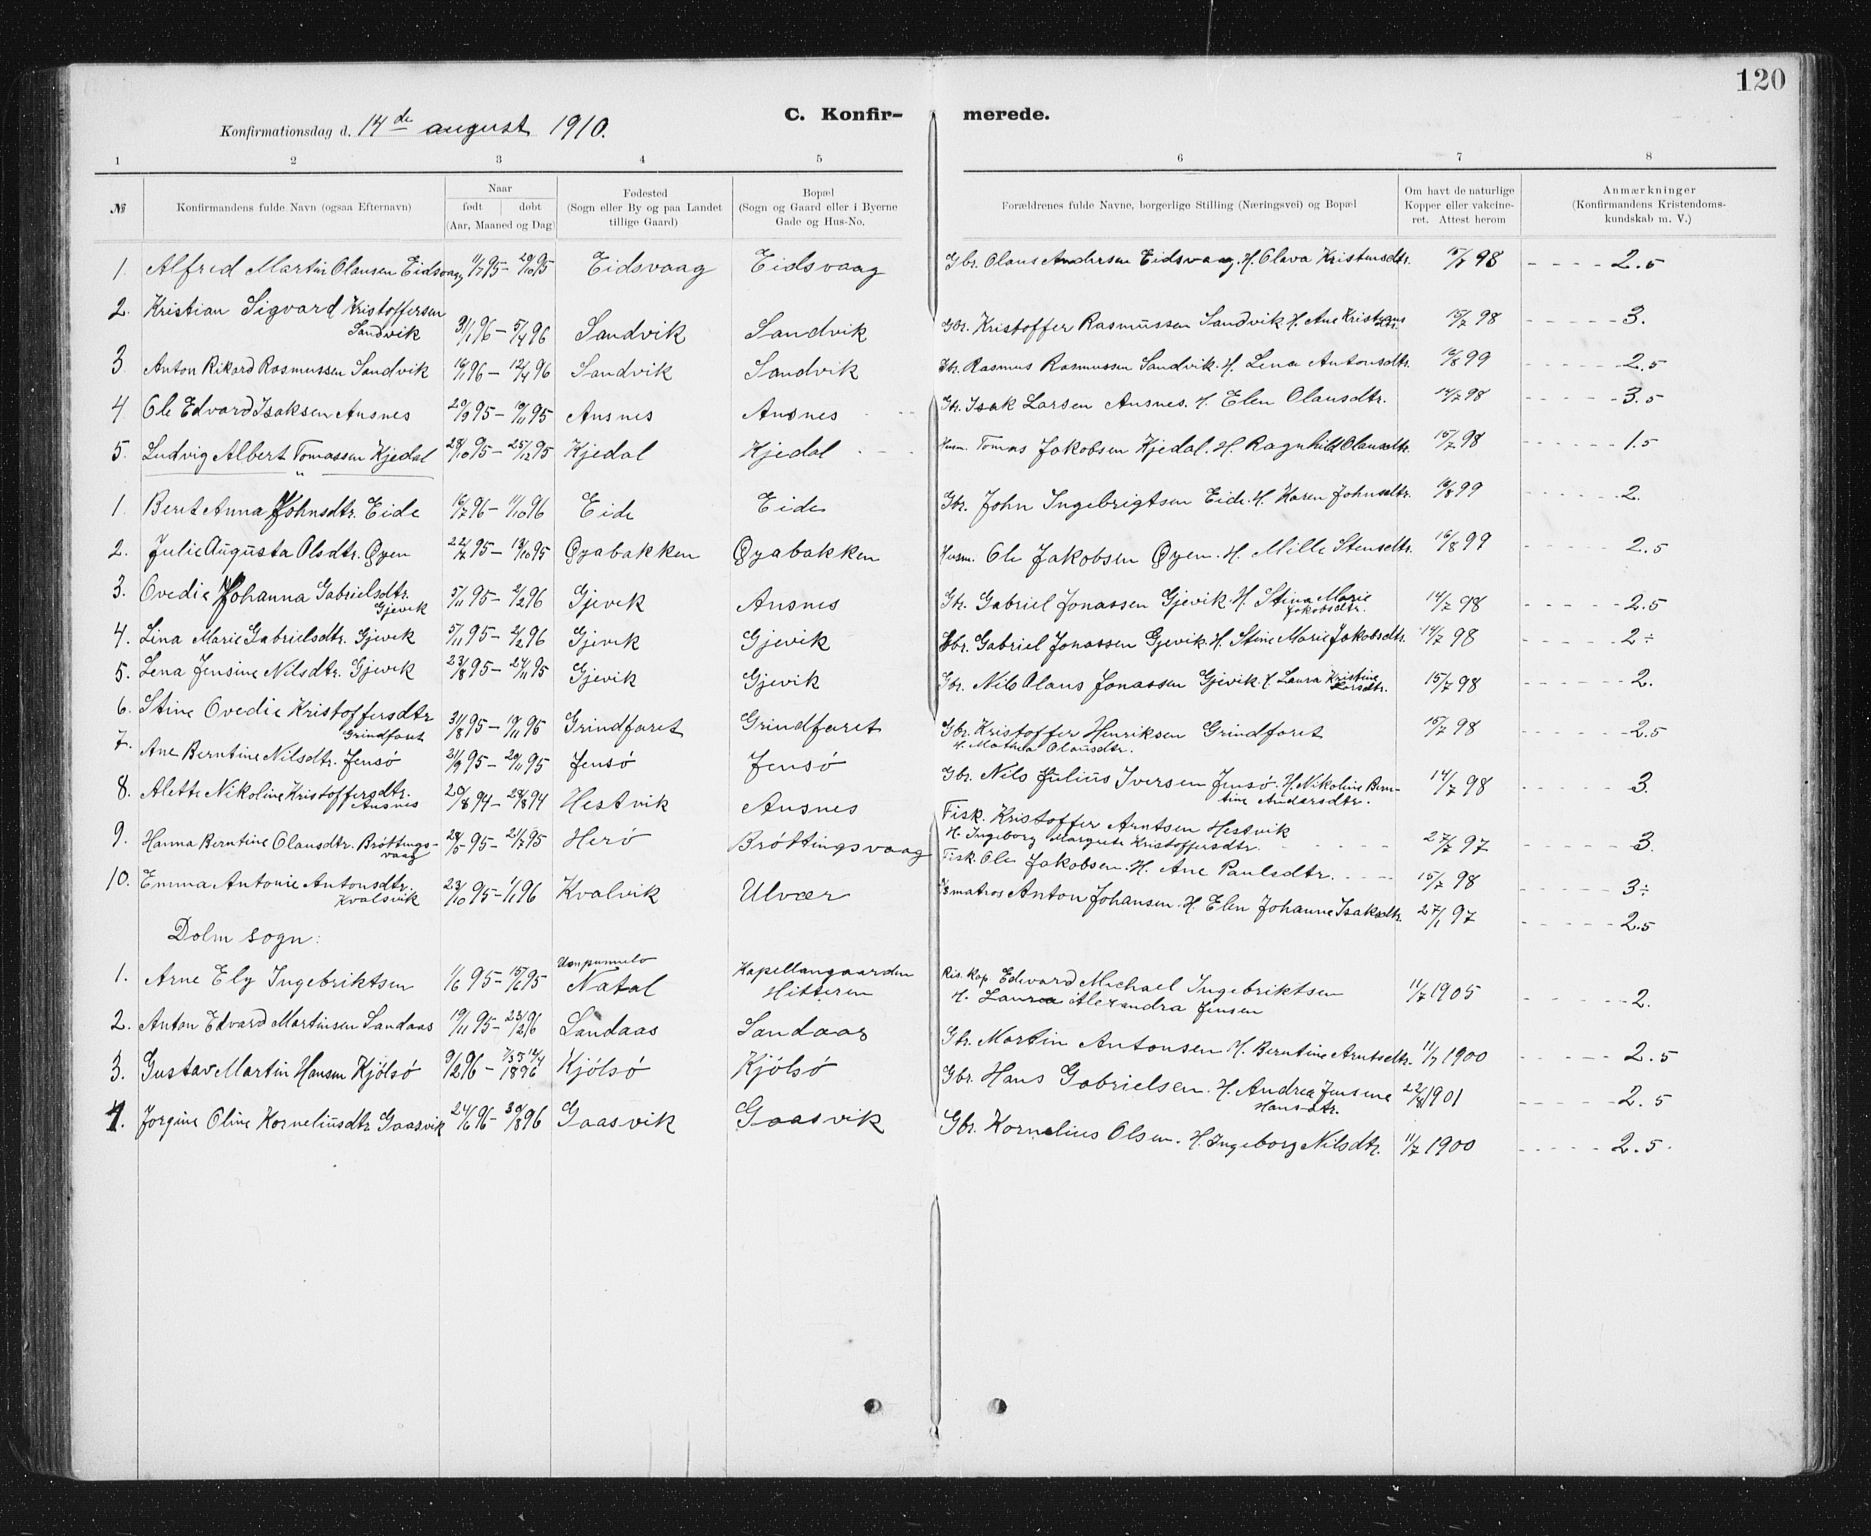 120
C. Konfir- merede.
Konfirmationsdag d. 14de august 1910.
1 2 3 4 5 6 7 8
№ Konfirmandens fulde Navn (ogsaa Efternavn) Naar født døbt (Aar, Maaned og Dag) Fødested (Sogn eller By og paa Landet tillige Gaard) Bopæl (Sogn og Gaard eller i Byerne Gade og Hus-No. Forældrenes fulde Navne, borgerlige Stilling (Næringsvei) og Bopæl Om havt de naturlige Kopper eller vakcineret. Attest herom Anmærkninger (Konfirmandens Kristendomskundskab m. V.)
1. Alfred Martin Olausen Eidsvaag 11/7 95 - 20/10 95 Eidsvaag Eidsvaag Gbr. Olaus Andersen Eidsvaag. H. Olava Kristensdtr. 15/7 98 2.5
2. Kristian Sigvard Kristoffersen Sandvik 9/1 96 - 5/4 96 Sandvik Sandvik Gbr. Kristoffer Rasmussen Sandvik H. Ane 15/7 98 3.
3. Anton Rikard Rasmussen Sandvik 16/1 96 - 12/4 96 Sandvik Sandvik Gbr. Rasmus Rasmussen Sandvik. H. Lina Antonsdtr. 16/8 99 2.5
4. Ole Edvard Isaksen Ansnes 20/9 95 - 10/11 95 Ansnes Ansnes Gbr. Isak Larsen Ansnes. H. Elen Olausdtr. 14/7 98 3.5
5. Ludvig Albert Tomassen Kjedal 28/10 95 - 25/12 95 Kjedal Kjedal Husm. Tomas Jakobsen Kjedal. H. Ragnhild Olausdtr. 15/7 98 1.5
1. Berit Anna Johnsdtr. Eide 16/7 96 - 11/10 96 Eide Eide Gbr. John Ingebrigtsen Eide. H. Karen Johnsdtr. 16/8 99 2.
2. Julie Augusta Olsdtr. Øyen 22/7 95 - 13/10 95 Øyabakken Øyabakken Husm. Ole Jakobsen Øyen. H. Mille Stensdtr. 16/8 99 2.5
3. Ovedie Johanna Gabrielsdtr. Gjevik 5/11 95 - 2/2 96 Gjevik Ansnes Gbr. Gabriel Jonassen Gjevik. H. Stina Marie Jakobsdtr. 14/7 98 2.5
4. Lina Marie Gabrielsdtr. Gjevik 5/11 95 - 2/2 96 Gjevik Gjevik Gbr. Gabriel Jonassen Gjevik. H. Stine Marie Jakobsdtr. 14/7 98 2÷
5. Lena Jensine Nilsdtr. Gjevik 23/8 95 - 24/11 95 Gjevik Gjevik Gbr. Nils Olaus Jonassen Gjevik. H. Laura Kristine Larsdtr. 15/7 98 2.
6. Stine Ovedie Kristoffersdtr Grindfaret 31/8 95 - 10/11 95 Grindfaret Grindfaret Gbr. Kristoffer Henriksen Grindfaret H. Mathea Olausdtr. 15/7 98 2.5
7. Ane Berntine Nilsdtr. Jensø 21/9 95 - 24/11 95 Jensø Jensø Gbr. Nils Julius Iversen Jensø. H. Nikoline Berntine Andersdtr. 14/7 98 3.
8. Alette Nikoline Kristoffersdtr. Ansnes 20/8 94 - 28/8 94 Hestvik Ansnes Fisk. Kristoffer Arntsen Hestvik H. Ingeborg Margrete Kristoffersdtr. 27/7 97 3.
9. Hanna Berntine Olausdtr. Bröttingsvaag 28/5 95 - 21/7 95 Herö Bröttingsvaag Fisk. Ole Jakobsen. H. Ane Paulsdtr. 15/7 98 3÷
10. Emma Antonie Antonsdtr. Kvalsvik 23/10 95 - 1/1 96 Kvalvik Ulvær matros Anton Johansen. H. Elen Johanne Isaksdtr. 27/1 97 2.5
Dolm sogn:
1. Arne Ely Ingebriktsen 1/6 95 - 15/6 95 Umpumulo Natal Kapellangaarden Hitteren Res. Kap. Edward Michael Ingebriktsen H. Laura Alexandra Jensen 11/7 1905 2.
2. Anton Edvard Martinsen Sandaas 19/11 95 - 23/2 96 Sandaas Sandaas Gbr. Martin Antonsen H. Berntine Arntsdtr. 11/7 1900 2.5
3. Gustav Martin Hansen Kjölsö 9/2 96 - 1896 Kjölsö Kjölsö Gbr. Hans Gabrielsen. H. Andrea Jensine Hansdtr. 22/8 1901 2.5
4. Jorgine Oline Korneliusdtr Gaasvik 24/6 96 - 30/8 96 Gaasvik Gaasvik Gbr. Kornelius Olsen. H. Ingeborg Nilsdtr. 11/7 1900 2.5.